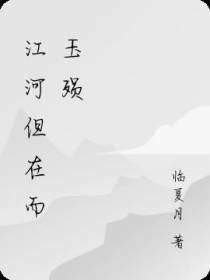 江河但在而
玉殒
临夏月 著